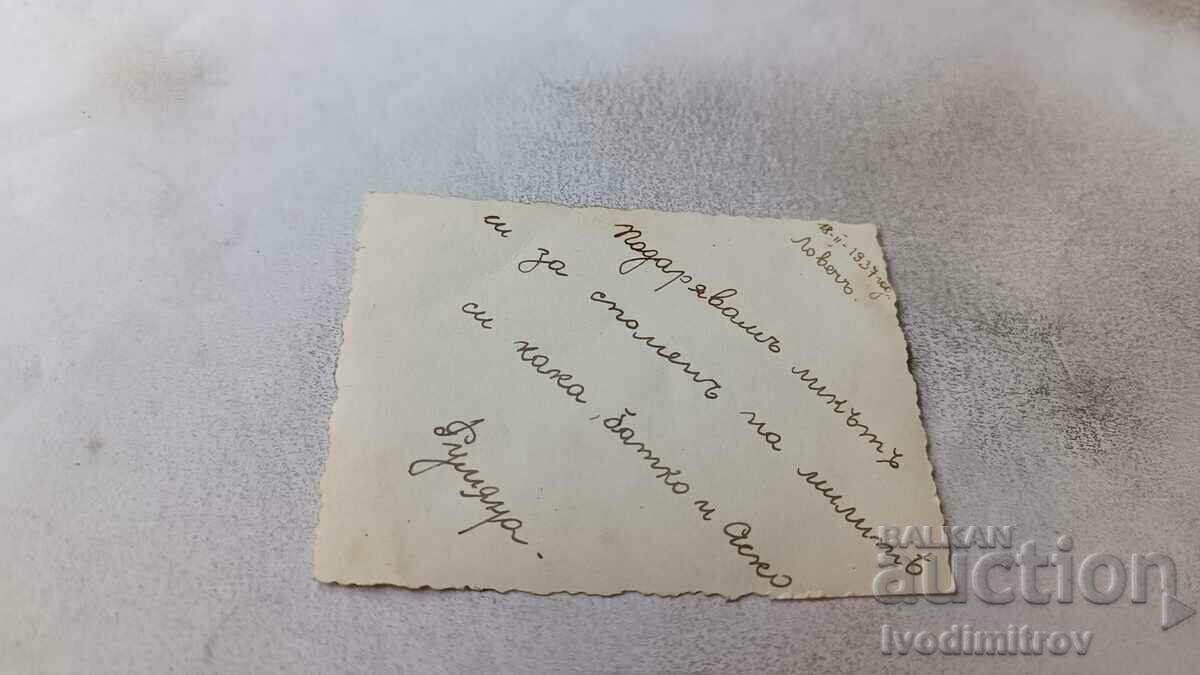 18-II-1937 год.
Ловечъ.
Подарявамъ ликътъ
си за споменъ на милитѣ
си кака, батко и Аско
Румяна.
BALKAN
auction
Ivodimitrov